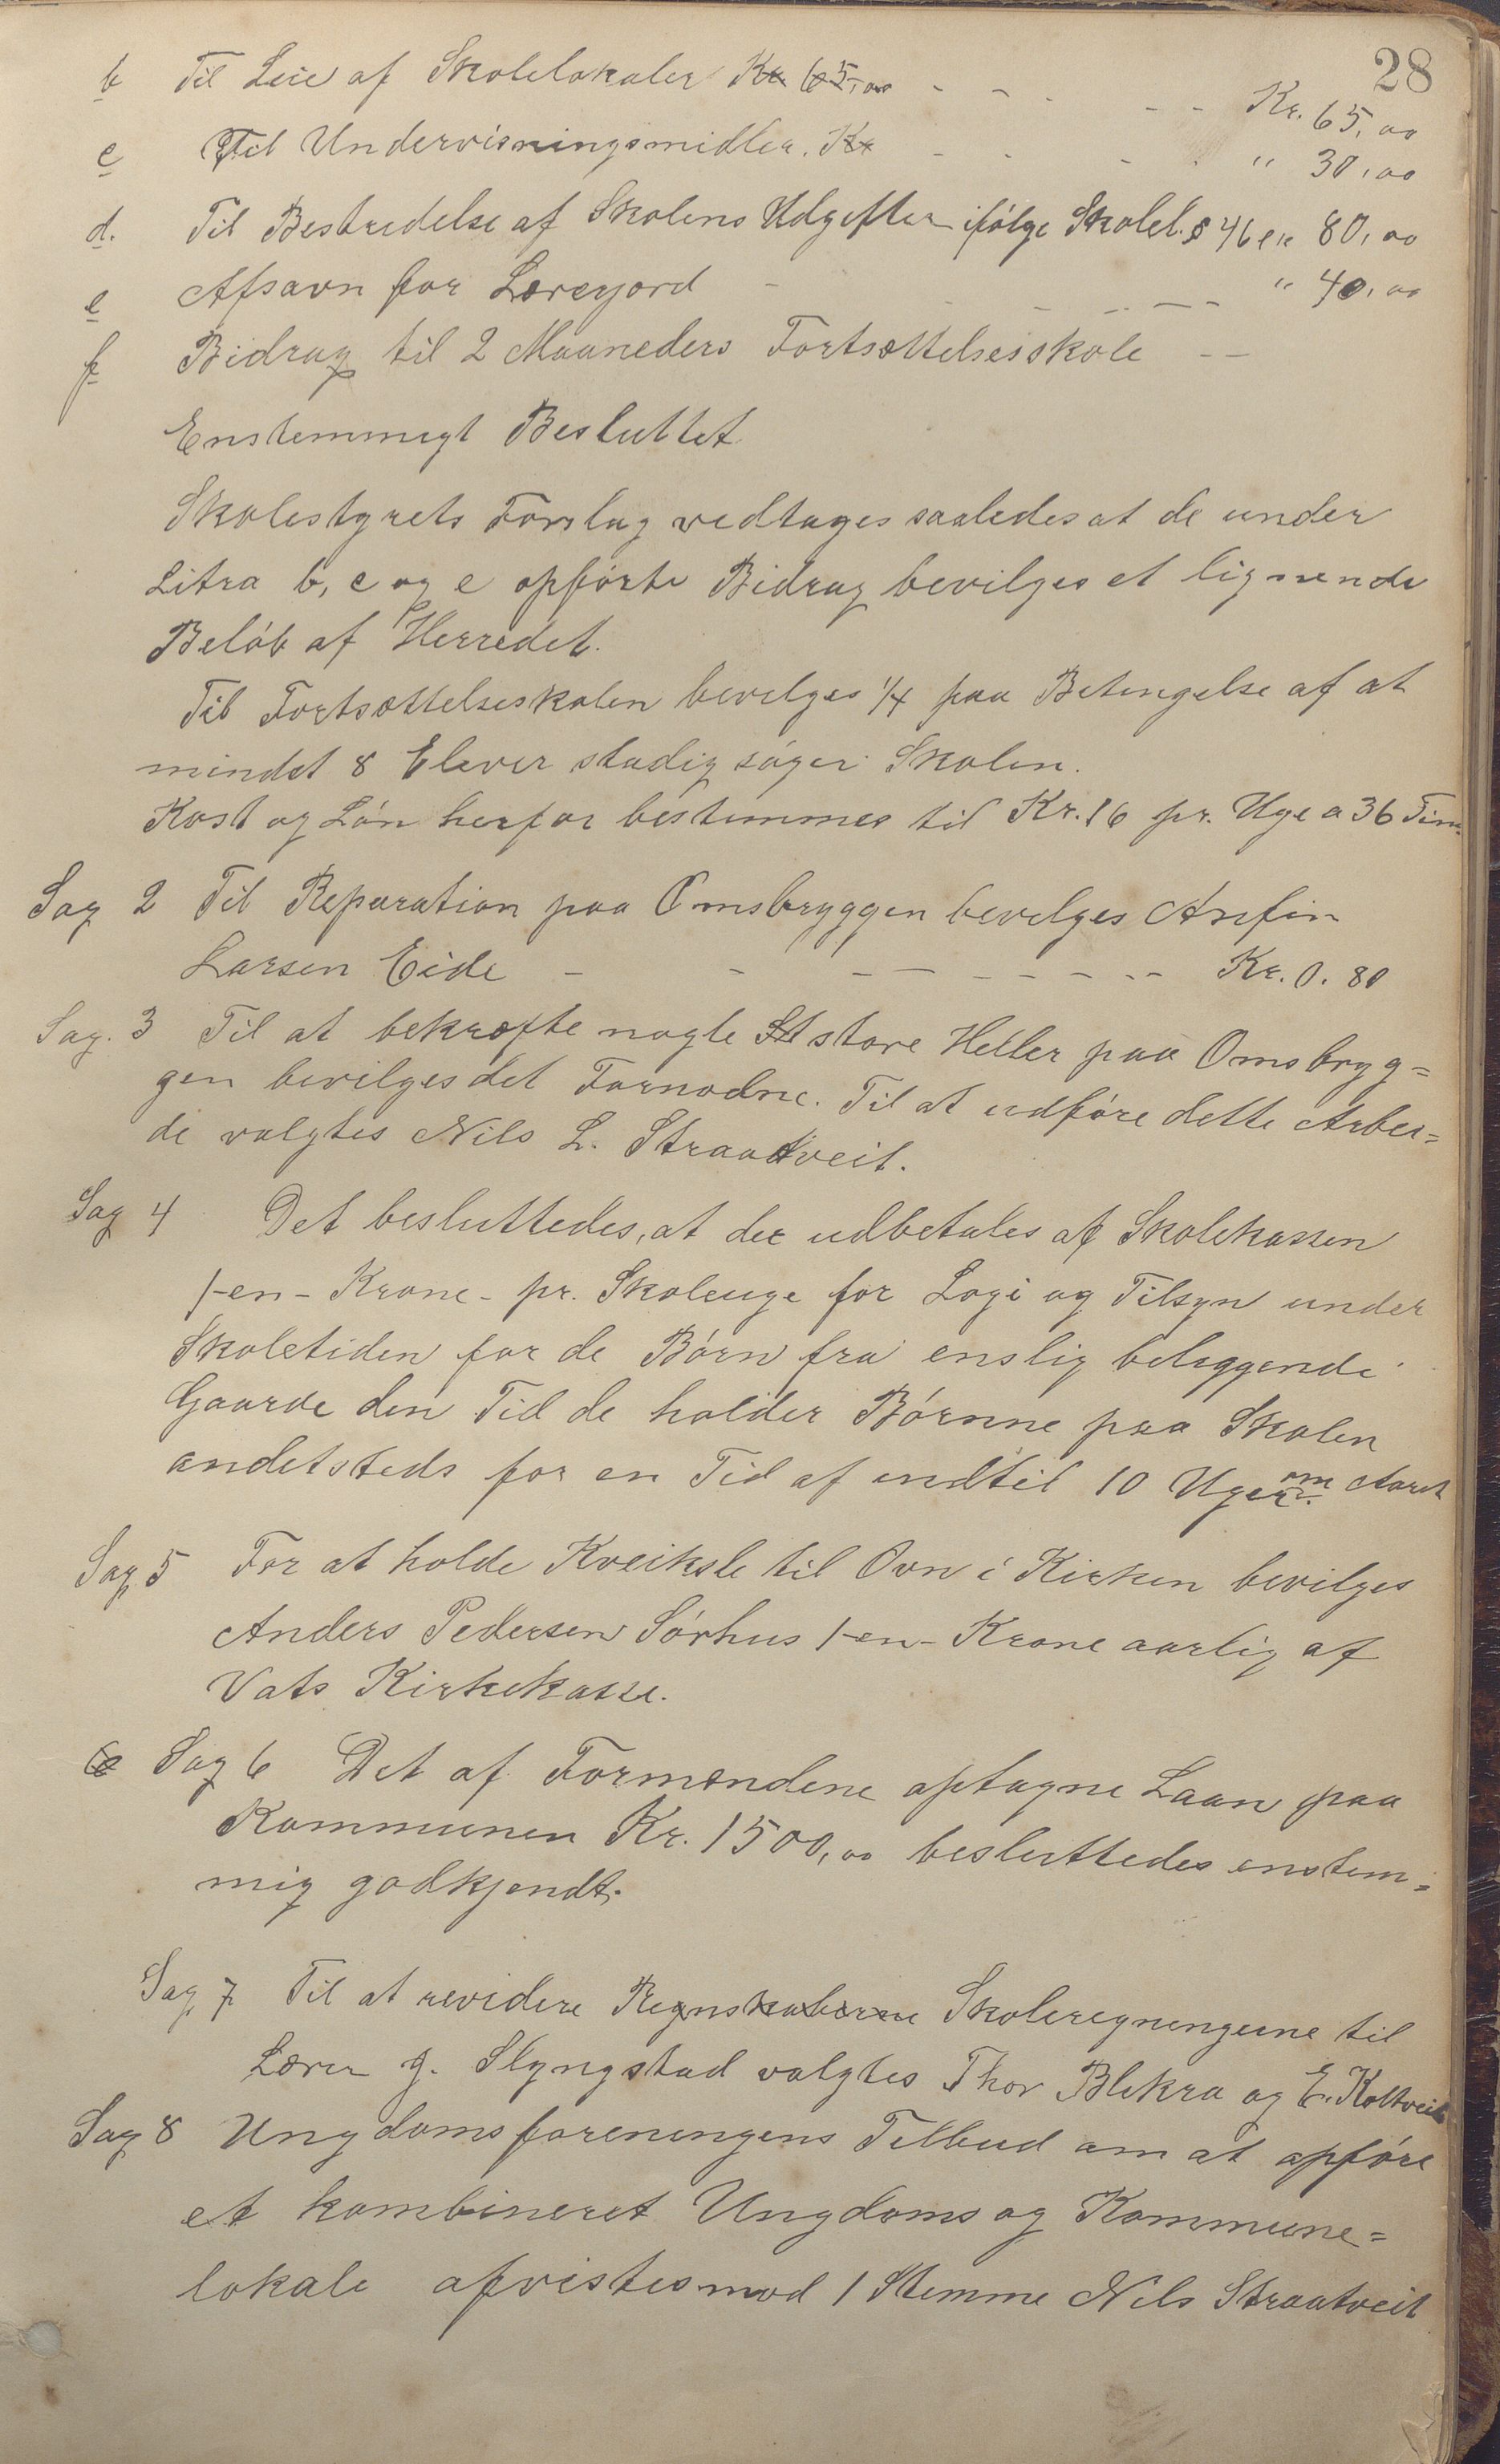 28
b Til Leie af Skolelokaler Kr 65,00 - - - - - Kr. 65,00
c Til Undervisningsmidler. Kr - - - - " 30,00
d. Til Bestredelse af Skolens Udgifter ifölge Skolel. § 46 80,00
e Afsavn for Lærerjord - - - - - " 40,00
f Bidrag til 2 Maaneders Fortsættelsesskole - -
Enstemmigt Besluttet
Skolestyrets Forslag vedtages saaledes at de under
Litra b, c og e opförte Bidrag bevilges et lignende
Belöb af Herredet.
Til Fortsættelseskolen bevilges 1/4 paa Betingelse af at
mindst 8 Elever stadig söger Skolen.
Kost og Lön herfor bestemmes til Kr. 16 pr. Uge a 36 Tim.
Sag 2 Til Reparation paa Omsbryggen bevilges Anfin
Larsen Eide - - - - - - - - Kr. 0.80
Sag. 3 Til at bekræfte nogle St store Heller paa Omsbryg=
gen bevilges det Fornødne. Til at udföre dette Arbei=
de valgtes Nils L. Straatveit.
Sag 4 Det besluttedes, at der udbetales af Skolekassen
1-en- Krone- pr. Skoleuge for Logi og Tilsyn under
Skoletiden for de Börn fra enslig beliggende
Gaarde den Tid de holder Börnne paa Skolen
andetsteds for en Tid af indtil 10 Uger om Aaret
Sag 5 For at holde Kveiksle til Ovn i Kirken bevilges
Anders Pedersen Sörhus 1-en- Krone aarlig af
Vats Kirkekasse.
Sag 6 Det af Formændene optagne Laan paa
Kommunen Kr. 1500,00 besluttedes enstem=
mig godkjendt.
Sag 7 Til at revidere Regnskaberne Skoleregningerne til
Lærer J. Slyngstad valgtes Thor Blikra og E. Koltveit
Sag 8 Ungdomsforeningens Tilbud om at opföre
et kombineret Ungdoms og Kommune=
lokale afvistes mod 1 Stemme Nils Straatveit